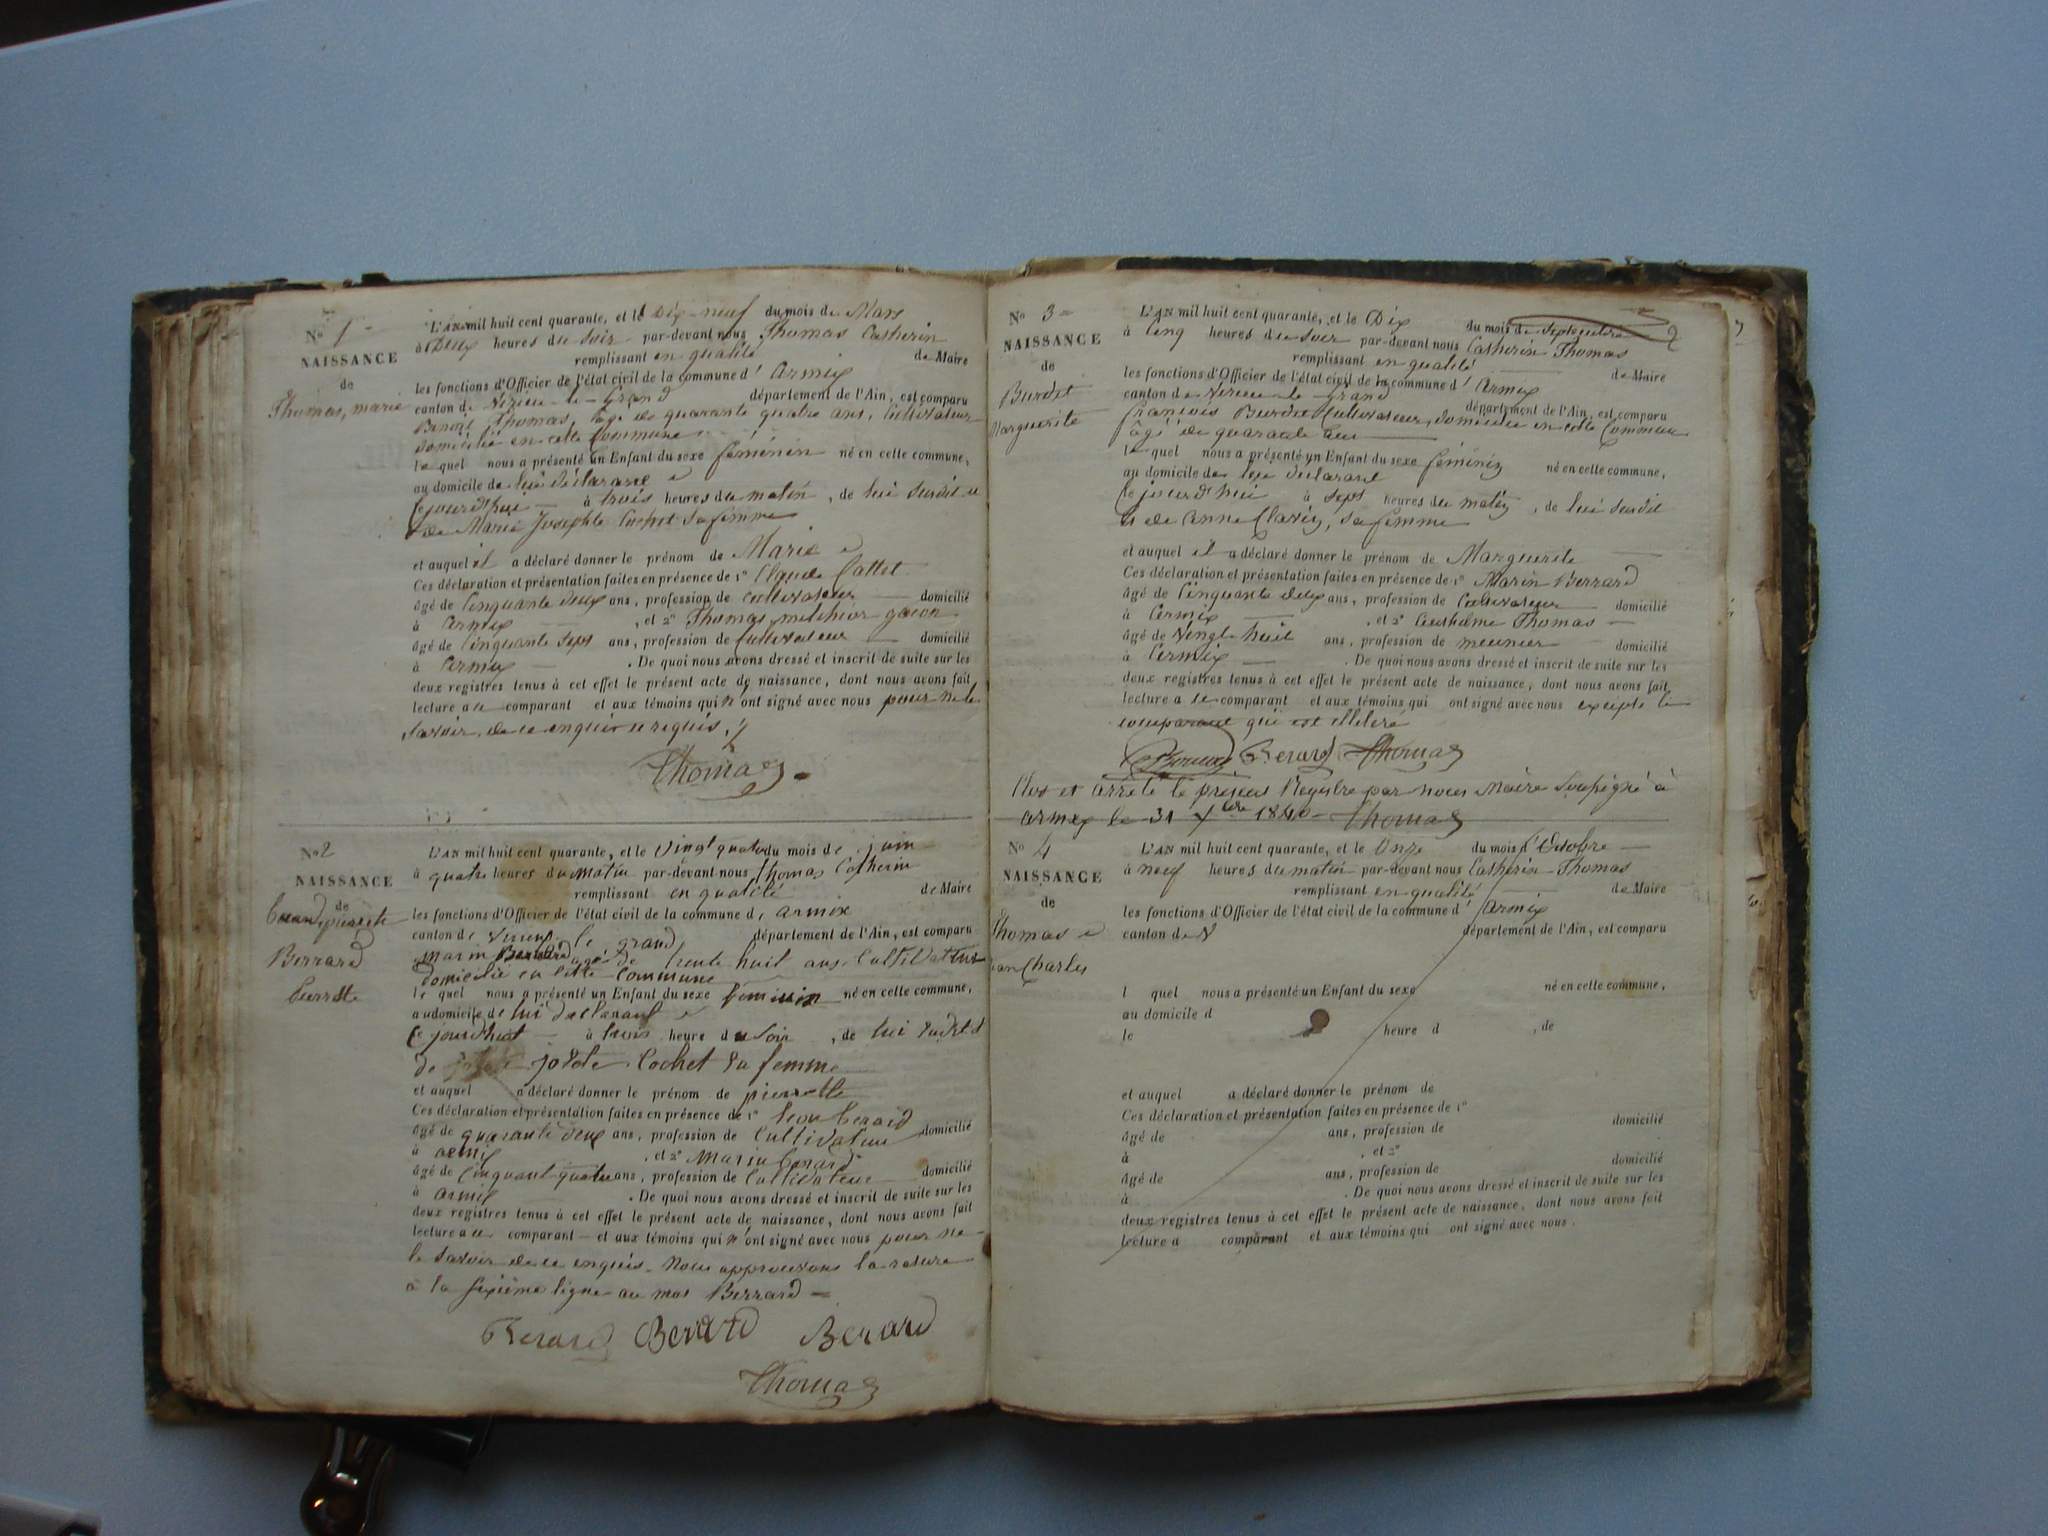 N° 1
NAISSANCE
de
Thomas, marie
L'AN mil huit cent quarante, et le Dix-neuf du mois de Mars
à Deux heures du soir par-devant nous Thomas Catherin
remplissant en qualité de Maire
les fonctions d'Officier de l'état civil de la commune d'Armix
canton de Virieu-le-Grand département de l'Ain, est comparu
Benoit Thomas, âgé de quarante quatre ans, Cultivateur
domicilié en cette Commune
le quel nous a présenté un Enfant du sexe féminin né en cette commune,
au domicile de lui déclarant
ce jourd'hui à trois heures du matin, de lui susdit et
de Marie Josephte Cochet sa femme
et auquel il a déclaré donner le prénom de Marie
Ces déclaration et présentation faites en présence de 1° Claude Cattet
âgé de Cinquante deux ans, profession de cultivateur domicilié
à armix, et 2° Thomas melchior
âgé de Cinquante sept ans, profession de Cultivateur domicilié
à armix. De quoi nous avons dressé et inscrit de suite sur les
deux registres tenus à cet effet le présent acte de naissance, dont nous avons fait
lecture au comparant et aux témoins qui n'ont signé avec nous pour ne le
savoir, de ce enquis et requis.
Thomas
N° 2
NAISSANCE
de
Berrard
Pierrette
L'AN mil huit cent quarante, et le vingt quatre du mois de juin
à quatre heures du matin par-devant nous Thomas Catherin
remplissant en qualité de Maire
les fonctions d'Officier de l'état civil de la commune d'armix
canton de virieux le grand département de l'Ain, est comparu
marin Berrard agé de trente huit ans Cultivateur
domicilié en cette commune
le quel nous a présenté un Enfant du sexe féminin né en cette commune,
au domicile de lui déclarant
ce jourd'hui à trois heure du soir, de lui sudit et
de Cochet sa femme
et auquel a déclaré donner le prénom de pierrette
Ces déclaration et présentation faites en présence de 1° berard
âgé de quarante deux ans, profession de Cultivateur domicilié
à armix, et 2° Marin berard
âgé de cinquant quatre ans, profession de Cultivateur domicilié
à armix. De quoi nous avons dressé et inscrit de suite sur les
deux registres tenus à cet effet le présent acte de naissance, dont nous avons fait
lecture au comparant et aux témoins qui n'ont signé avec nous pour ne
le savoir de ce enquis. Nous approuvons la rature
à la sixième ligne au mot Berrard
Berard Berard Berard
Thomas
N° 3
NAISSANCE
de
Burdet
Marguerite
L'AN mil huit cent quarante, et le Dix du mois de septembre
à Cinq heures du soir par-devant nous Catherin Thomas
remplissant en qualité de Maire
les fonctions d'Officier de l'état civil de la commune d'Armix
canton de Virieu-le-Grand département de l'Ain, est comparu
françois Burdet Cultivateur, domicilié en cette Commune
âgé de quarante
le quel nous a présenté un Enfant du sexe féminin né en cette commune,
au domicile de lui déclarant
ce jourd'hui à sept heures du matin, de lui susdit
et de anne Clavin, sa femme
et auquel il a déclaré donner le prénom de Marguerite
Ces déclaration et présentation faites en présence de 1° Marin Berrard
âgé de Cinquante deux ans, profession de Cultivateur domicilié
à armix, et 2° Anthelme Thomas
âgé de vingt huit ans, profession de meunier domicilié
à armix. De quoi nous avons dressé et inscrit de suite sur les
deux registres tenus à cet effet le présent acte de naissance, dont nous avons fait
lecture a le comparant et aux témoins qui ont signé avec nous excepté le
comparant qui est illitéré
Berard Thomas
Clos et arrêté le présent Registre par nous Maire soussigné à
armix le 31 1840 Thomas
N° 4
NAISSANCE
de
Thomas
Jean Charles
L'AN mil huit cent quarante, et le Onze du mois d'Octobre
à neuf heures du matin par-devant nous Catherin Thomas
remplissant en qualité de Maire
les fonctions d'Officier de l'état civil de la commune d'Armix
canton de V département de l'Ain, est comparu
l quel nous a présenté un Enfant du sexe né en cette commune,
au domicile d
le à heure d, de
et auquel a déclaré donner le prénom de
Ces déclaration et présentation faites en présence de 1°
âgé de ans, profession de domicilié
à, et 2°
âgé de ans, profession de domicilié
à. De quoi nous avons dressé et inscrit de suite sur les
deux registres tenus à cet effet le présent acte de naissance, dont nous avons fait
lecture a comparant et aux témoins qui ont signé avec nous.